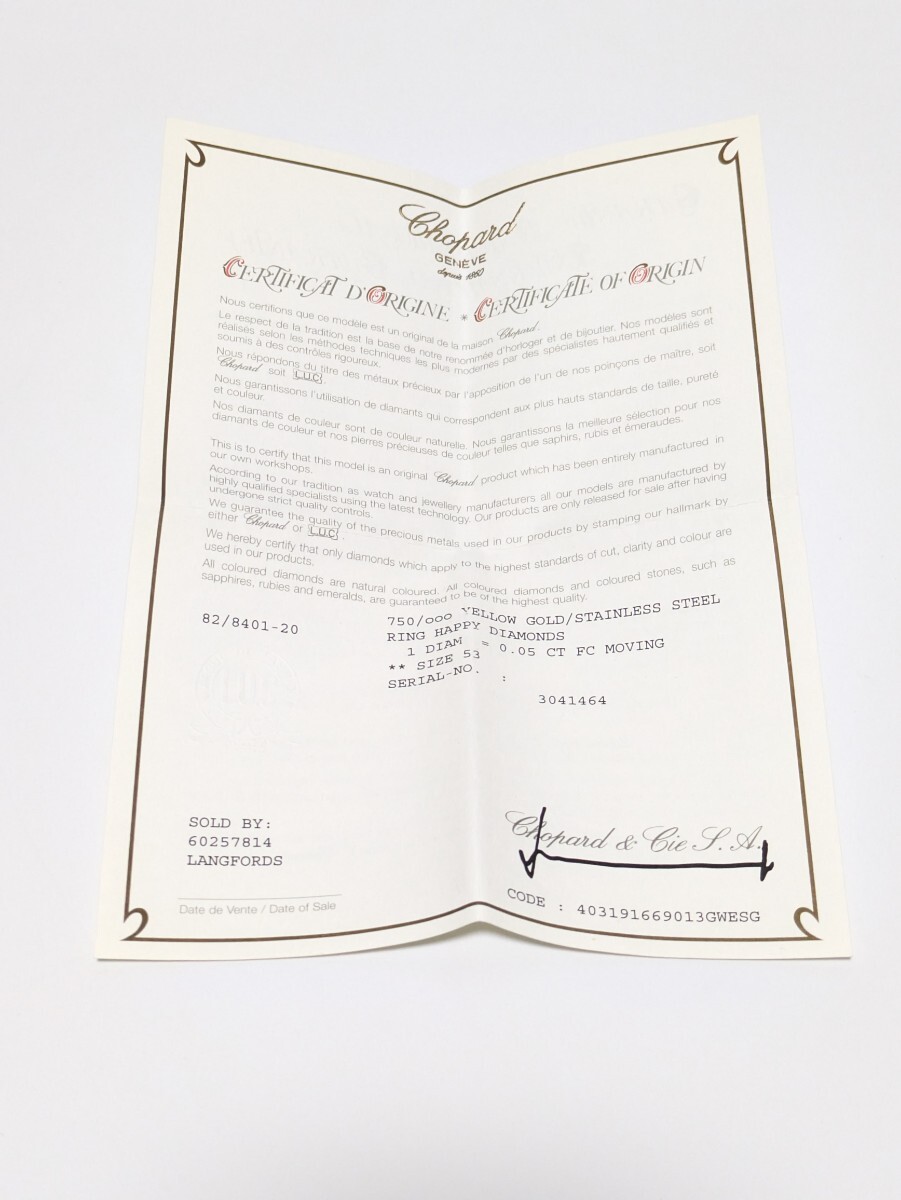 Chopard
GENÈVE
depuis 1860
CERTIFICAT D'ORIGINE * CERTIFICATE OF ORIGIN
Nous certifions que ce modèle est un original de la maison Chopard.
Le respect de la tradition est la base de notre renommée d'horloger et de bijoutier. Nos modèles sont
réalisés selon les méthodes techniques les plus modernes par des spécialistes hautement qualifiés et
soumis à des contrôles rigoureux.
Nous répondons du titre des métaux précieux par l'apposition de l'un de nos poinçons de maître, soit
Chopard soit L.U.C.
Nous garantissons l'utilisation de diamants qui correspondent aux plus hauts standards de taille, pureté
et couleur.
Nos diamants de couleur sont de couleur naturelle. Nous garantissons la meilleure sélection pour nos
diamants de couleur et nos pierres précieuses de couleur telles que saphirs, rubis et émeraudes.
This is to certify that this model is an original Chopard product which has been entirely manufactured in
our own workshops.
According to our tradition as watch and jewellery manufacturers all our models are manufactured by
highly qualified specialists using the latest technology. Our products are only released for sale after having
undergone strict quality controls.
We guarantee the quality of the precious metals used in our products by stamping our hallmark by
either Chopard or L.U.C.
We hereby certify that only diamonds which apply to the highest standards of cut, clarity and colour are
used in our products.
All coloured diamonds are natural coloured. All coloured diamonds and coloured stones, such as
sapphires, rubies and emeralds, are guaranteed to be of the highest quality.
82/8401-20 750/ooo YELLOW GOLD/STAINLESS STEEL
RING HAPPY DIAMONDS
1 DIAM = 0.05 CT FC MOVING
** SIZE 53
SERIAL-NO. :
3041464
SOLD BY:
60257814
LANGFORDS
Chopard & Cie S.A.
Date de Vente / Date of Sale
CODE : 403191669013GWESG